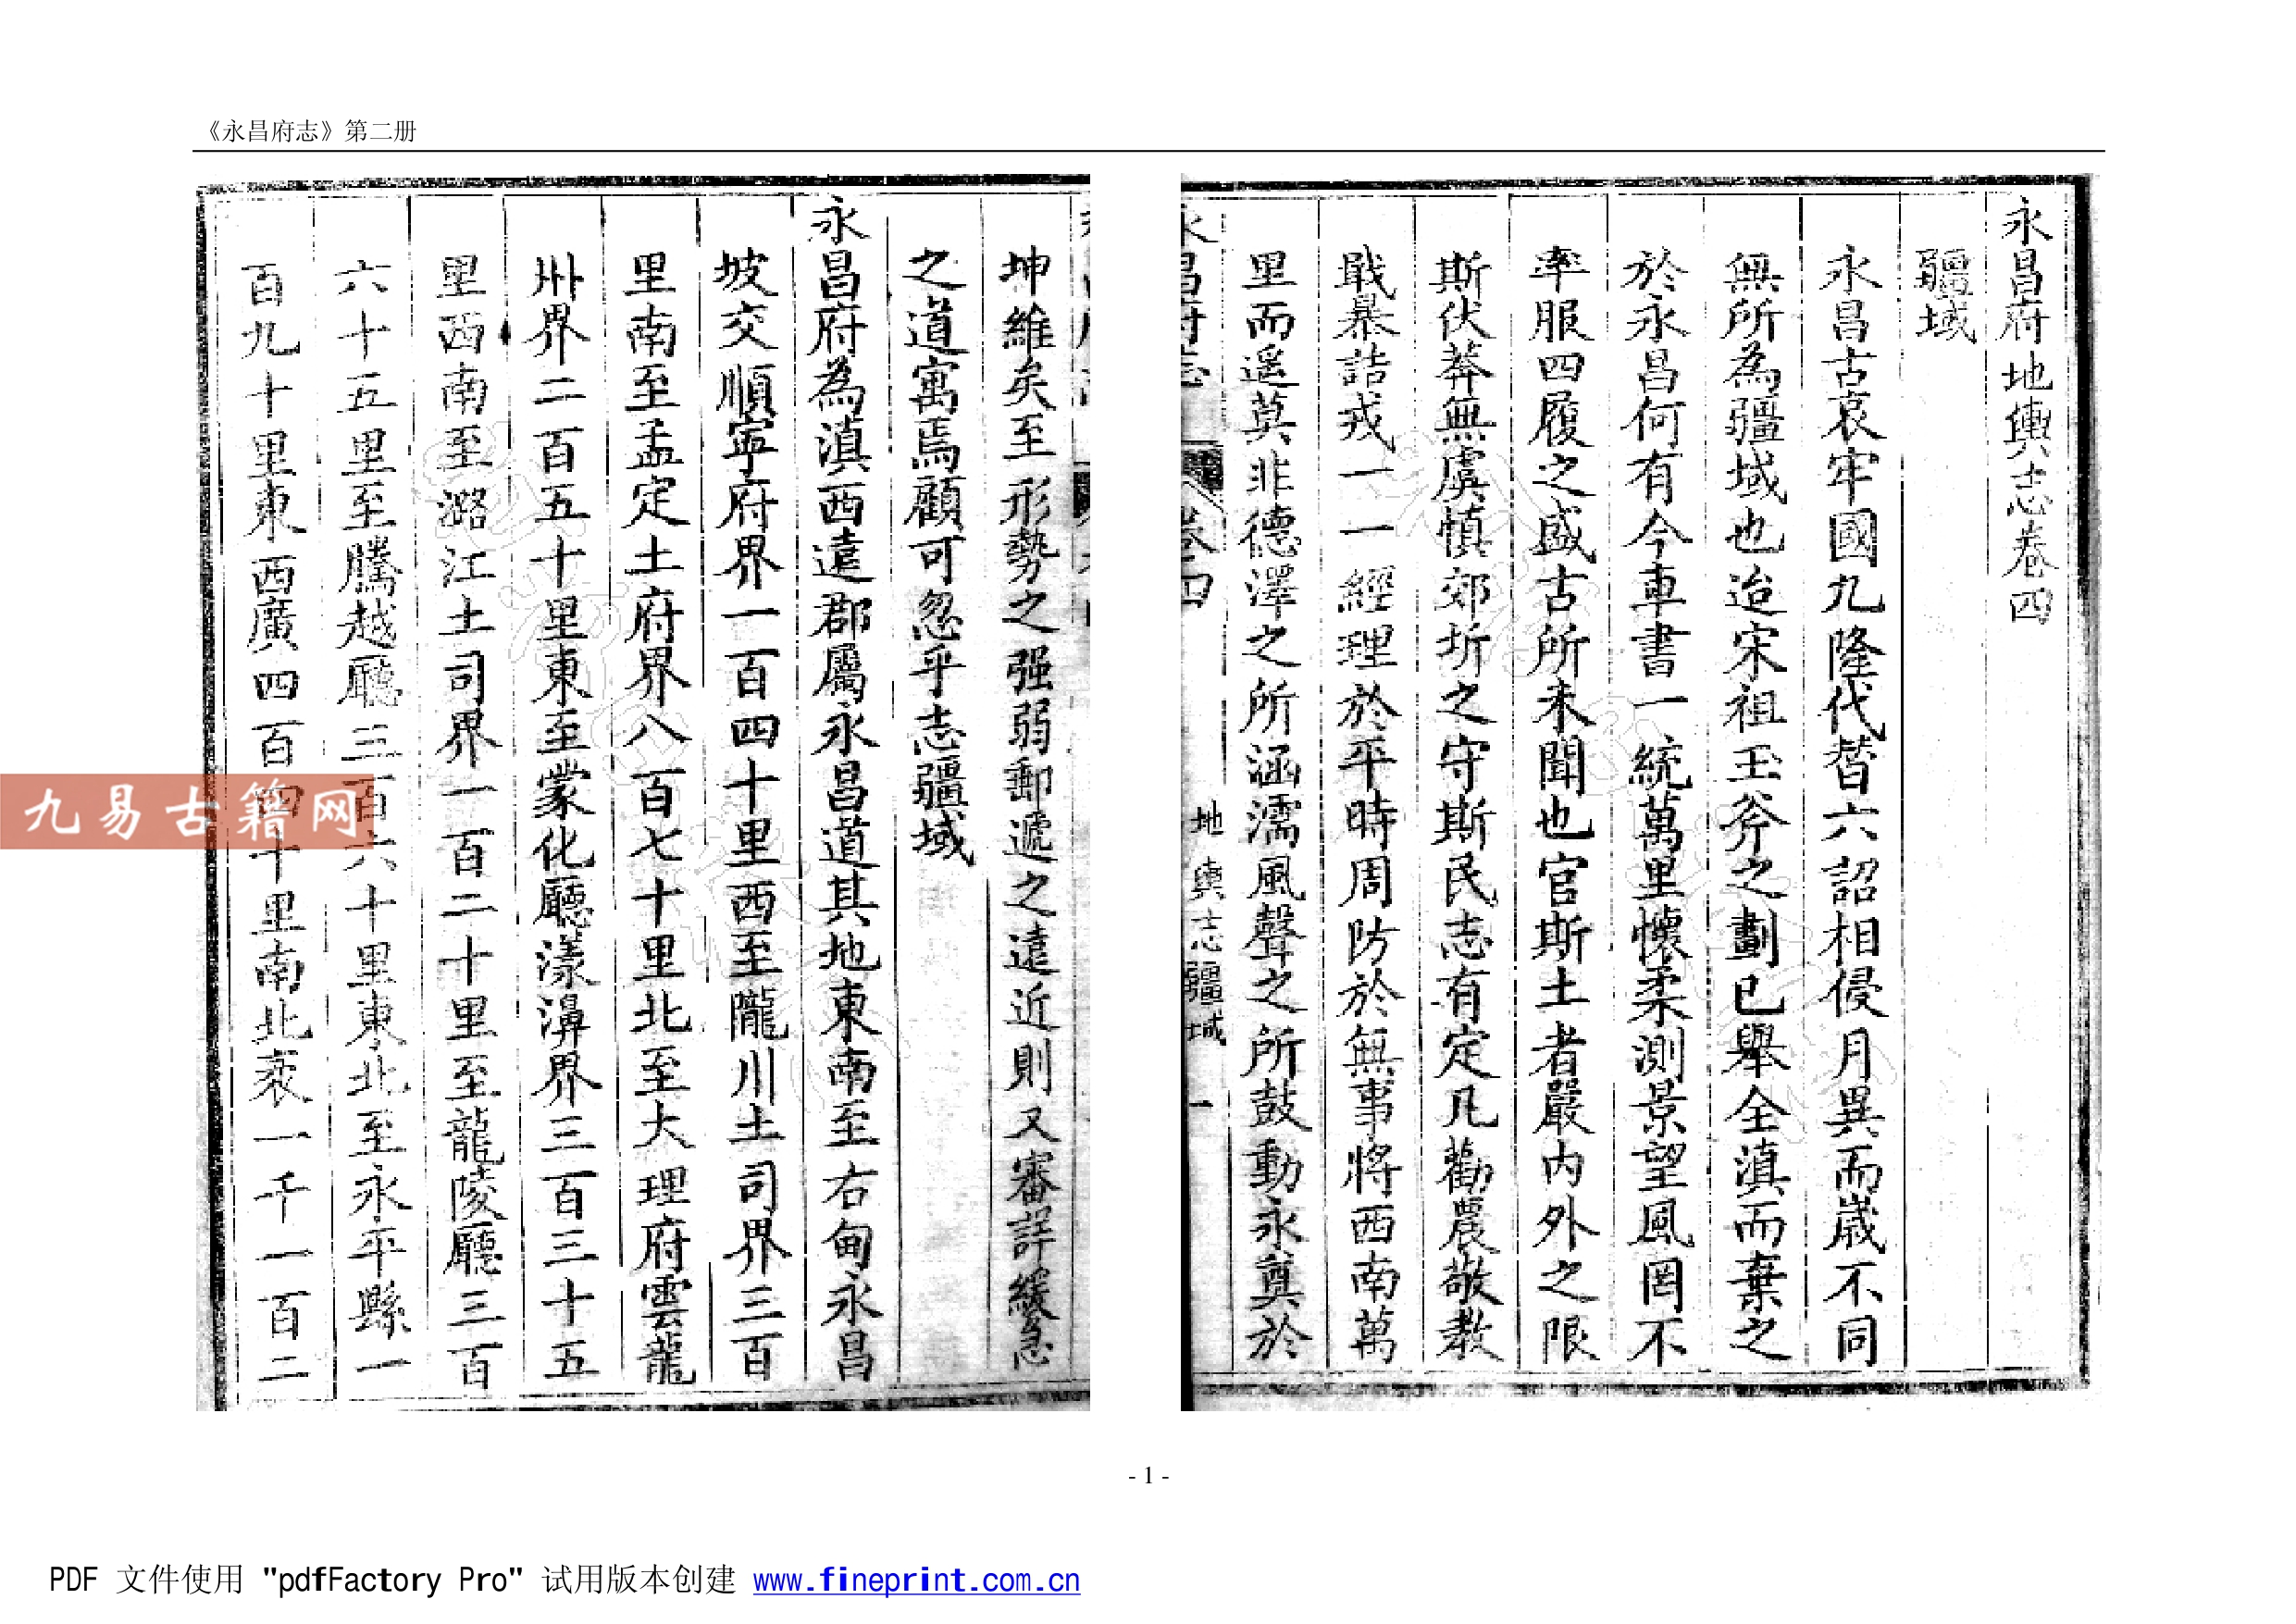 《永昌府志》第二册
永昌府地輿志卷四
疆域
永昌古哀牢國九隆代替六詔相侵月異而歲不同
無所為疆域也迨宋祖玉斧之劃已舉全滇而棄之
於永昌何有今車書一統萬里懷柔測景望風罔不
率服四履之盛古所未聞也官斯土者嚴内外之限
斯伏莽無虞慎郊圻之守斯民志有定凡勸農敬教
戢暴詰戎一一經理於平時周防於無事將西南萬
里而遥莫非德澤之所涵濡風聲之所鼓動永奠於
永昌府志 卷四 地輿志疆域 一
坤維矣至形勢之强弱郵遞之遠近則又審詳緩急
之道寓焉顧可忽乎志疆域
永昌府為滇西遠郡屬永昌道其地東南至右甸永昌
坡交順寧府界一百四十里西至隴川土司界三百
里南至孟定土府界八百七十里北至大理府雲龍
州界二百五十里東至蒙化廳漾濞界三百三十五
里西南至潞江土司界一百二十里至龍陵廳三百
六十五里至騰越廳三百六十里東北至永平縣一
百九十里東西廣四百四十里南北袤一千一百二
九易古籍网
- 1 -
PDF 文件使用 "pdfFactory Pro" 试用版本创建 www.fineprint.com.cn